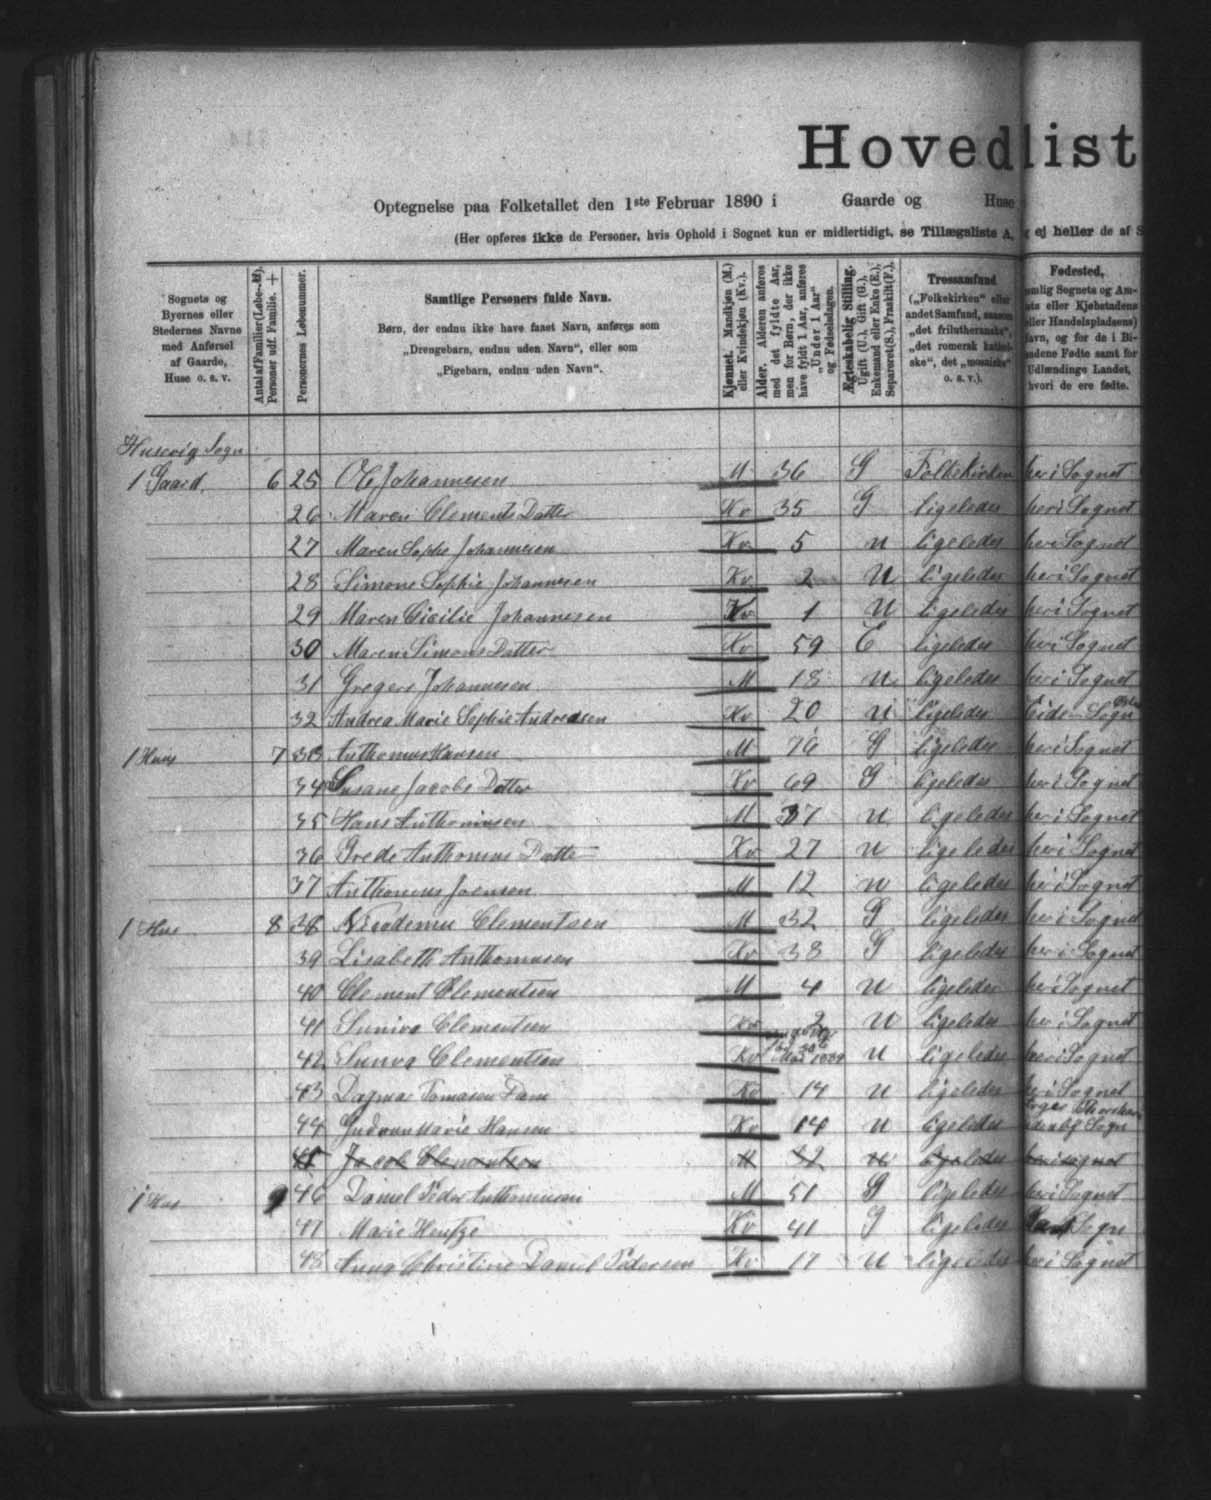 Hovedlist
Optegnelse paa Folketallet den 1ste Februar 1890 i Gaarde og Huse
(Her opføres ikke de Personer, hvis Ophold i Sognet kun er midlertidigt, se Tillægsliste A, ej heller de af S
Sognets og Byernes eller Stedernes Navne med Anførsel af Gaarde, Huse o. s. v.
Antal af Familier (Løbe-№). Personer udf. Familie. +
Personernes Løbenummer.
Samtlige Personers fulde Navn.
Børn, der endnu ikke have faaet Navn, anføres som
„Drengebarn, endnu uden Navn", eller som
„Pigebarn, endnu uden Navn".
Kjønnet. Mandkjøn (M.) eller Kvindekjøn (Kv.).
Alder. Alderen anføres med det fyldte Aar, men for Børn, der ikke have fyldt 1 Aar, anføres „Under 1 Aar" og Fødselsdagen.
Ægteskabelig Stilling. Ugift (U.), Gift (G.), Enkemand eller Enke (E.), Separeret (S.), Fraskilt (F.).
Trossamfund („Folkekirken" eller andet Samfund, saasom „det frilutheranske", „det romersk katholske", det „mosaiske" o. s. v.).
Fødested,
Husevig Sogn
1 Gaard 6 25 Ole Johannesen M 36 G Folkekirken her i Sognet
26 Maren Clements Datter Kv 35 G ligeledes her i Sognet
27 Maren Sophie Johannesen Kv 5 u ligeledes her i Sognet
28 Simone Sophie Johannesen Kv 2 U ligeledes her i Sognet
29 Maren Cicilie Johannesen Kv 1 U ligeledes her i Sognet
30 Maren Simons Datter Kv 59 E ligeledes her i Sognet
31 Gregers Johannesen M 18 u ligeledes her i Sognet
32 Andrea Marie Sophie Andreasen Kv 20 u ligeledes Eide Sogn
1 Huus 7 33 Anthonius Hansen M 76 G ligeledes her i Sognet
34 Susane Jacobs Datter Kv 69 G ligeledes her i Sognet
35 Hans Anthoniusen M 37 u ligeledes her i Sognet
36 Grede Anthonius Datter Kv 27 u ligeledes her i Sognet
37 Anthonius Joensen M 12 u ligeledes her i Sognet
1 Hus 8 38 Nicodemus Clementsen M 32 G ligeledes her i Sognet
39 Lisabeth Anthoniusen Kv 38 G ligeledes her i Sognet
40 Clement Clementsen M 4 U ligeledes her i Sognet
41 Suniva Clementsen Kv 2 U ligeledes her i Sognet
42 Clementsen Kv Mai 1889 u ligeledes her i Sognet
43 Dagmar Tomasen Dam Kv 14 u ligeledes her i Sognet
44 Gudrun Marie Hansen Kv 14 u ligeledes Sogn
45 Jacob Clementsen M 32 u ligeledes her i sognet
1 Hus 9 46 Daniel Peder Anthoniusen M 51 G ligeledes her i Sognet
47 Marie Kv 41 G ligeledes Sogn
48 Anna Christine Daniel Pedersen Kv 17 U ligeledes her i Sognet